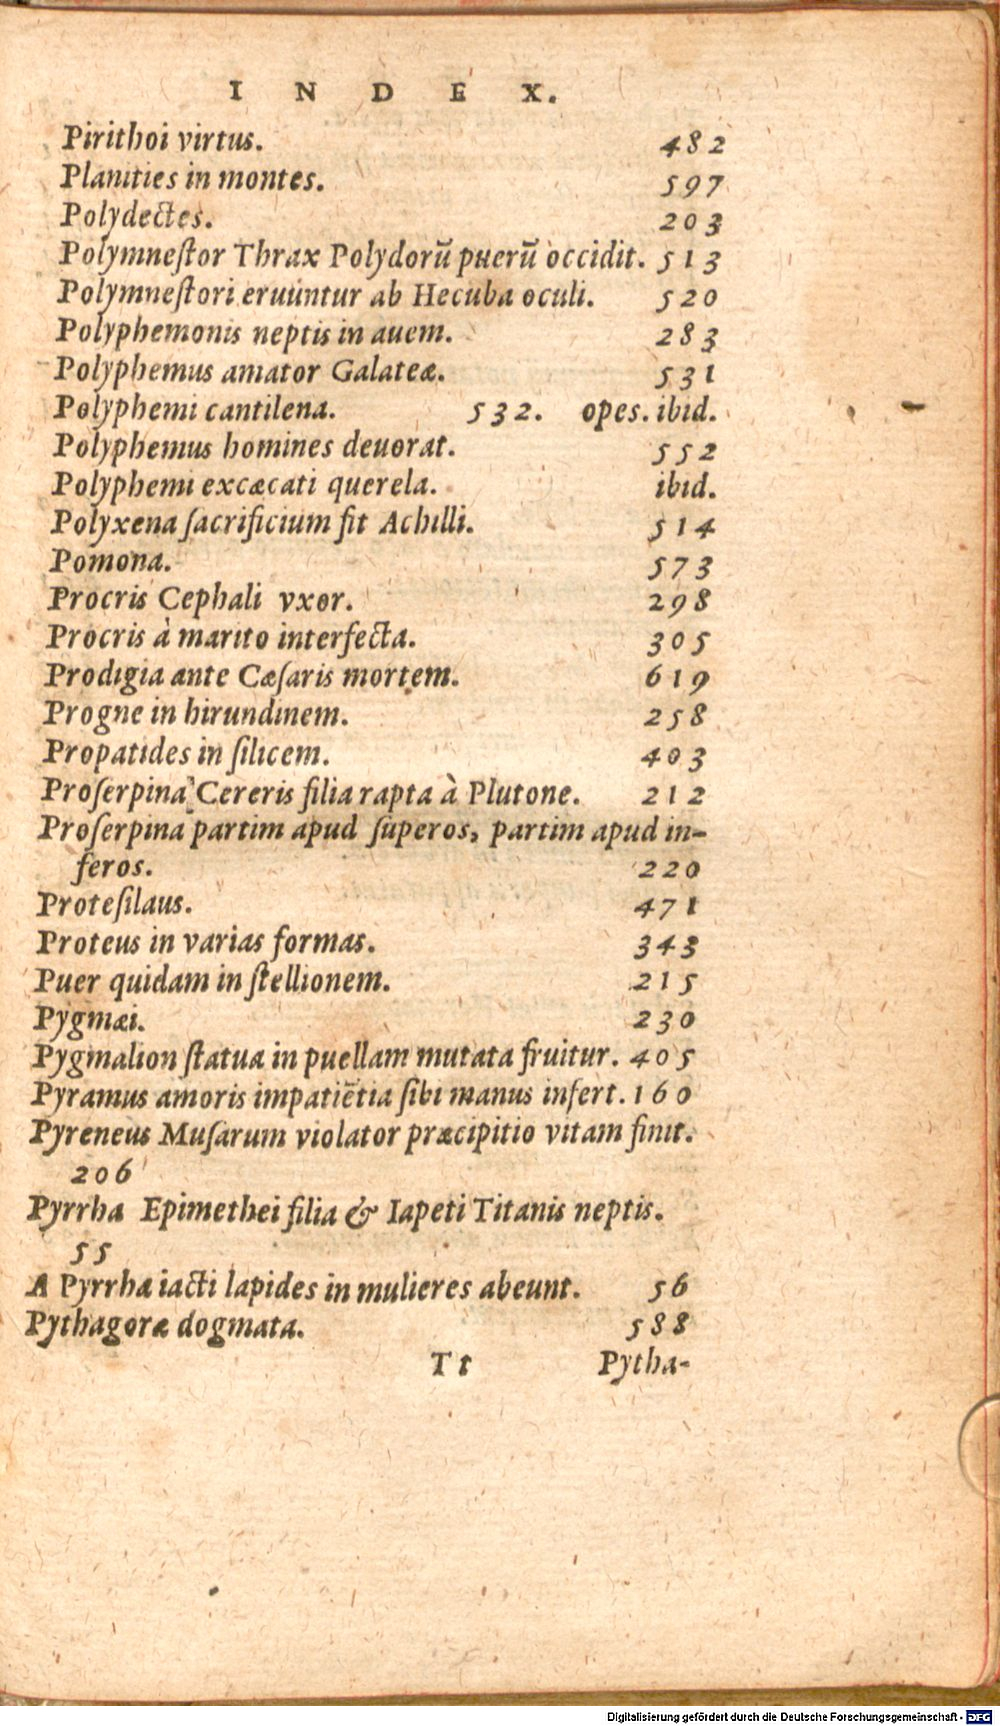 INDEX.
Pirithoi virtus. 482
Planities in montes. 597
Polydectes. 203
Polymneſtor Thrax Polydorū puerū occidit. 513
Polymneſtori eruuntur ab Hecuba oculi. 520
Polyphemonis neptis in auem. 283
Polyphemus amator Galateæ. 531
Polyphemi cantilena. 532. opes. ibid.
Polyphemus homines deuorat. 552
Polyphemi excæcati querela. ibid.
Polyxena ſacrificium fit Achilli. 514
Pomona. 573
Procris Cephali vxor. 298
Procris à marito interfecta. 305
Prodigia ante Cæſaris mortem. 619
Progne in hirundinem. 258
Propatides in ſilicem. 403
Proſerpina Cereris filia rapta à Plutone. 212
Proſerpina partim apud ſuperos, partim apud in-
feros. 220
Proteſilaus. 471
Proteus in varias formas. 343
Puer quidam in ſtellionem. 215
Pygmæi. 230
Pygmalion ſtatua in puellam mutata fruitur. 405
Pyramus amoris impatiētia ſibi manus infert. 160
Pyreneus Muſarum violator præcipitio vitam finit.
206
Pyrrha Epimethei filia & Iapeti Titanis neptis.
55
A Pyrrha iacti lapides in mulieres abeunt. 56
Pythagoræ dogmata. 588
Tt Pytha-
Digitalisierung gefördert durch die Deutsche Forschungsgemeinschaft - DFG